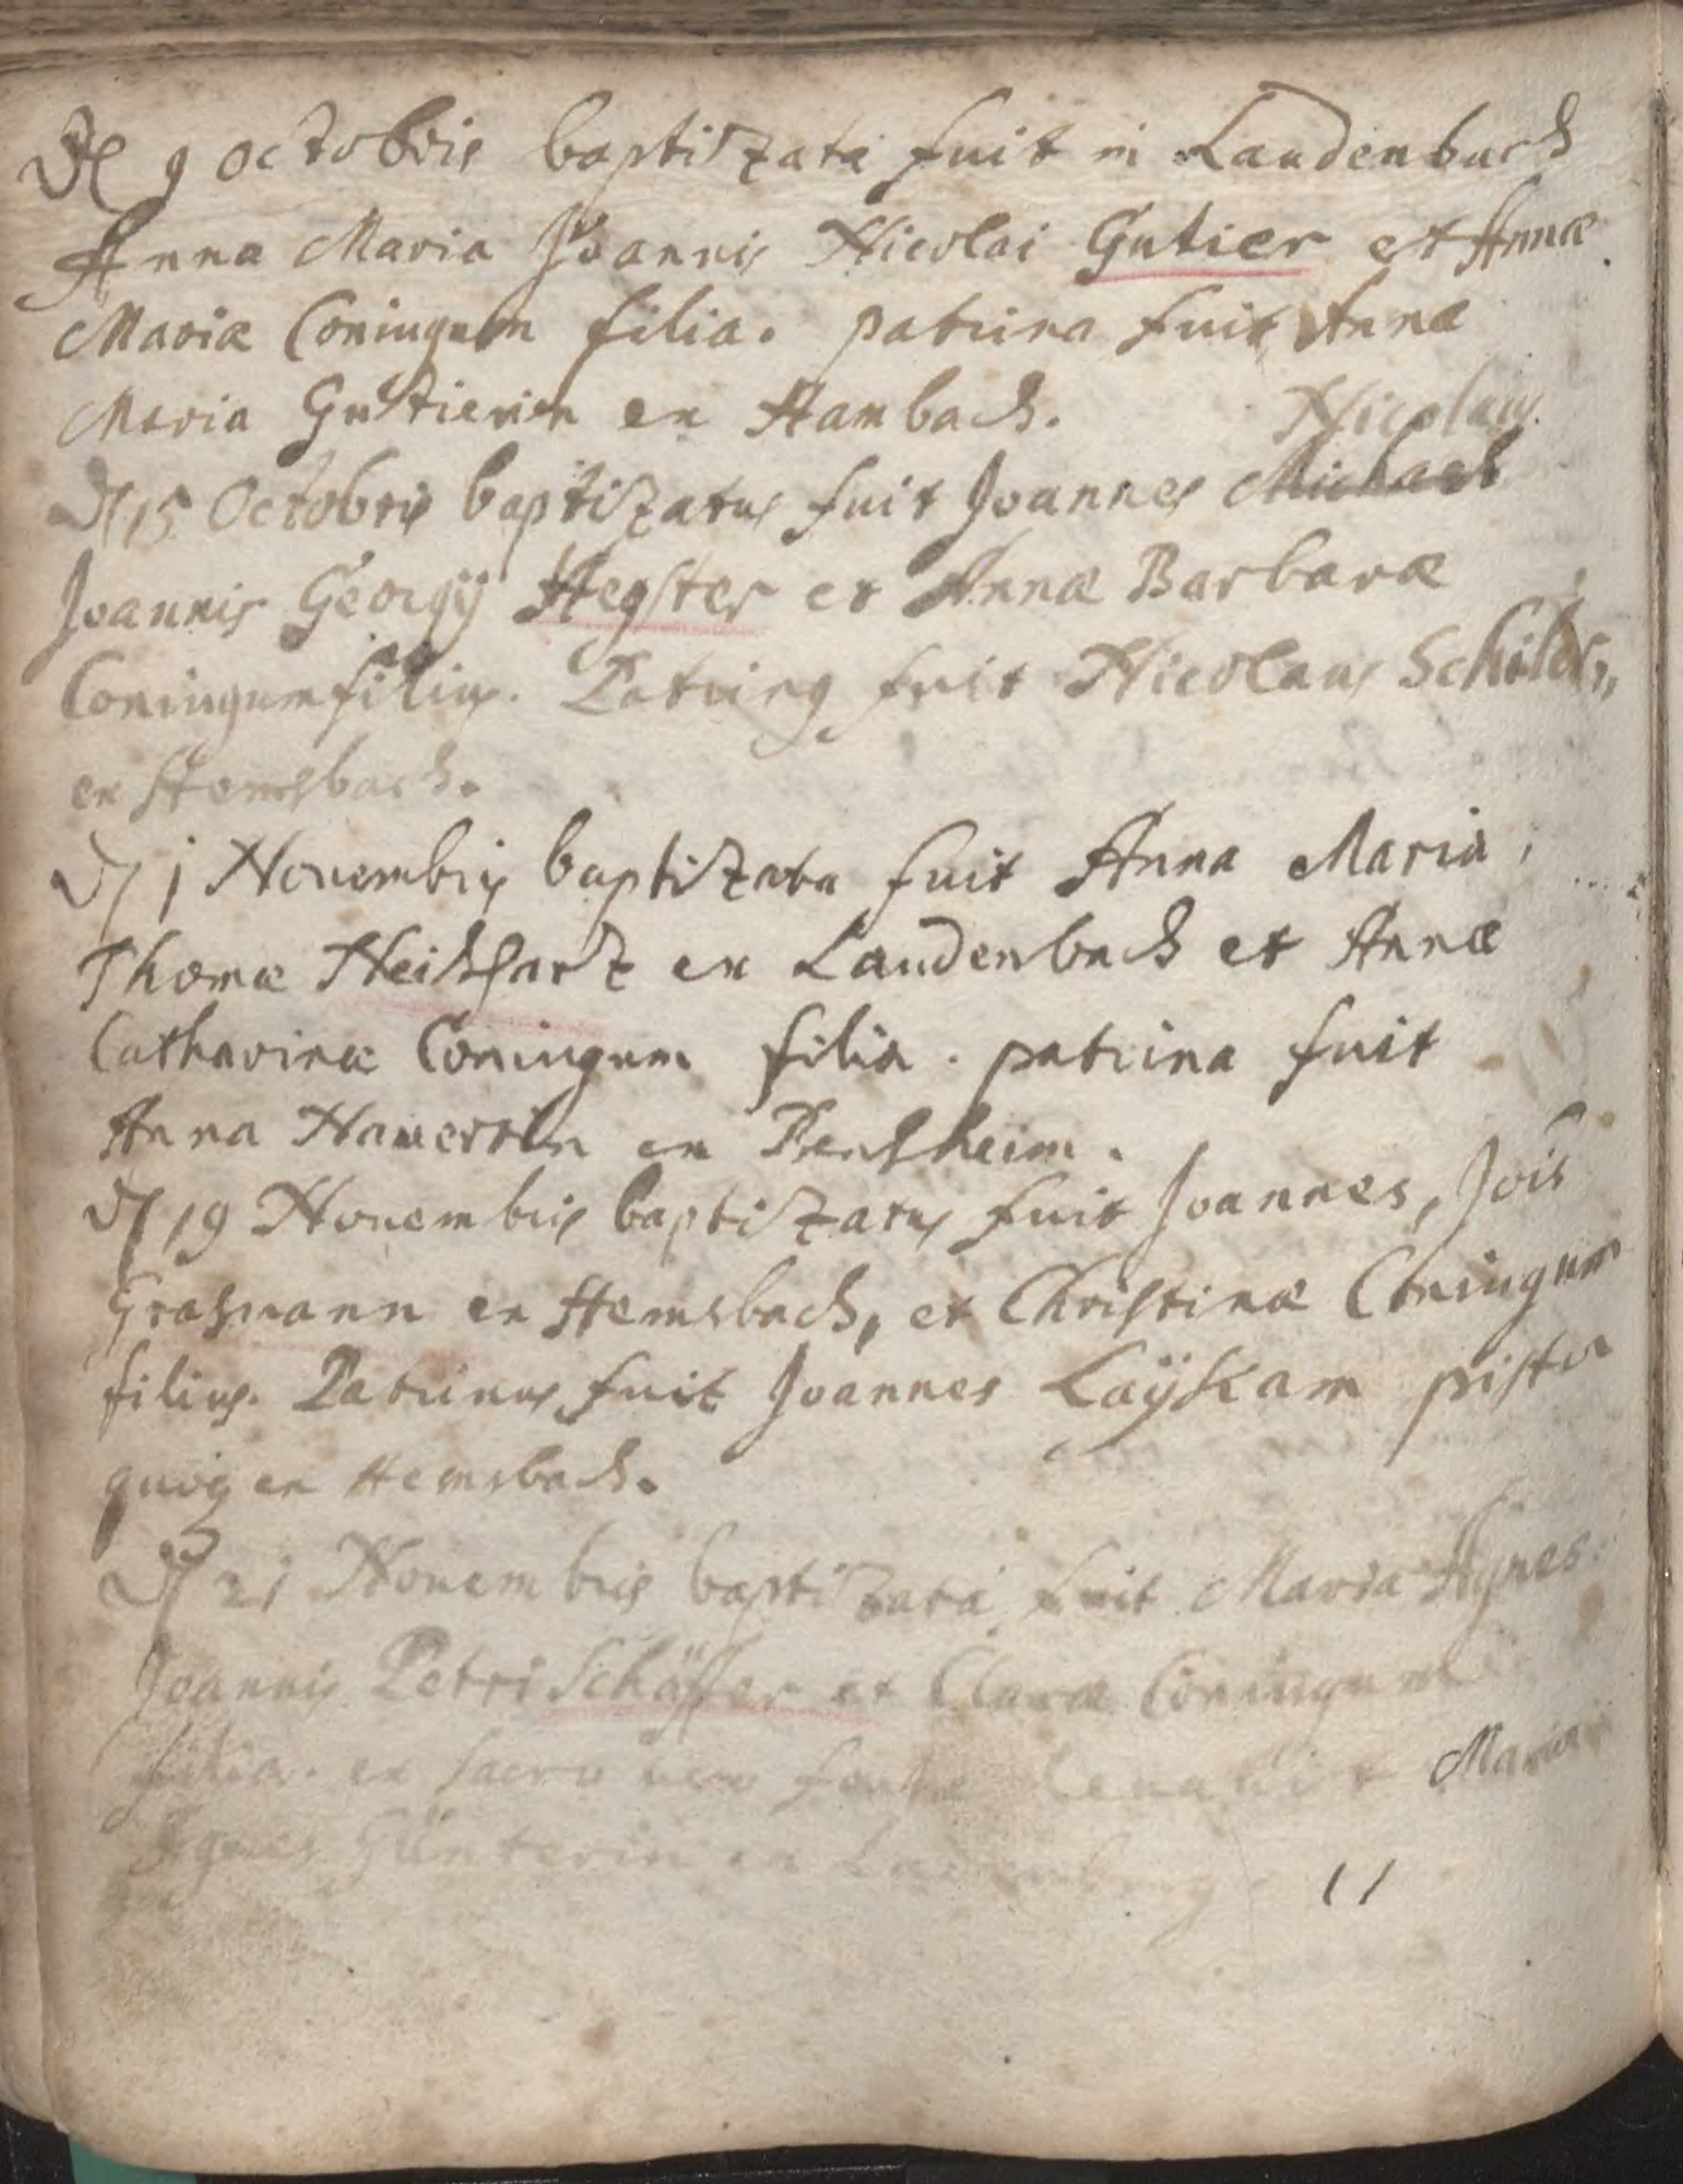 De 9 octobris baptizata fuit in Laudenbach
Anna Maria Joannis Nicolai Gutier et Annæ
Mariæ Coniugum filia. patrina fuit Anna
Maria Guttierin ex Hambach. Nicolaus
D 15 Octobris baptizatus fuit Joannes Michael
Joannis Georgij Hegster et Annæ Barbaræ
Coniugum filius. Patring fuit Nicolaus Schilds,,
ex Hemsbach.
D 1 Nouembris baptizata fuit Anna Maria,
Thomæ Neithartz ex Laudenbach et Annæ
Catharinæ Coniugum filia. patrina fuit
Anna ex Bensheim.
D 19 Nouembris baptizatus fuit Joannes, Jois
Grasmann ex Hemsbach, et Christinæ Coniugum
filius. Patrinus fuit Joannes Laÿkam pistor
quoq ex Hemsbach.
D 21 Nouembris baptizata fuit Maria Agnes
Joannis Petri Schäffer et Claræ Coniugum
filia. ex sacro vero fonte leuauit Maria
Agnes Günterin ex
11